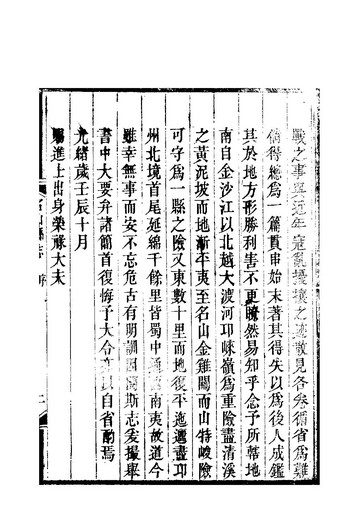 戰之事與近年寇亂擾攘之迹散見各備省為難
倘得總為一篇貫串始末著其得失以為後人戒鑑
其於地方形勝利害不更瞭然易知乎念予所轄地
南自金沙江以北越大渡河邛崍嶺為重險盡清溪
之黃泥坡而地漸平夷至名山金雞關而山特峻險
可字為一縣之險又東數十里而地復平迤邐盡邛
州北境首尾延綿千餘里皆蜀中通南夷故道今
雖幸無事而安不忘危古有明訓因斯志爰撮舉
書中大要弁諸簡首復悔予大令以自省焉
光緒歲壬辰十月
賜進士出身榮祿大夫
名山縣志 序 二